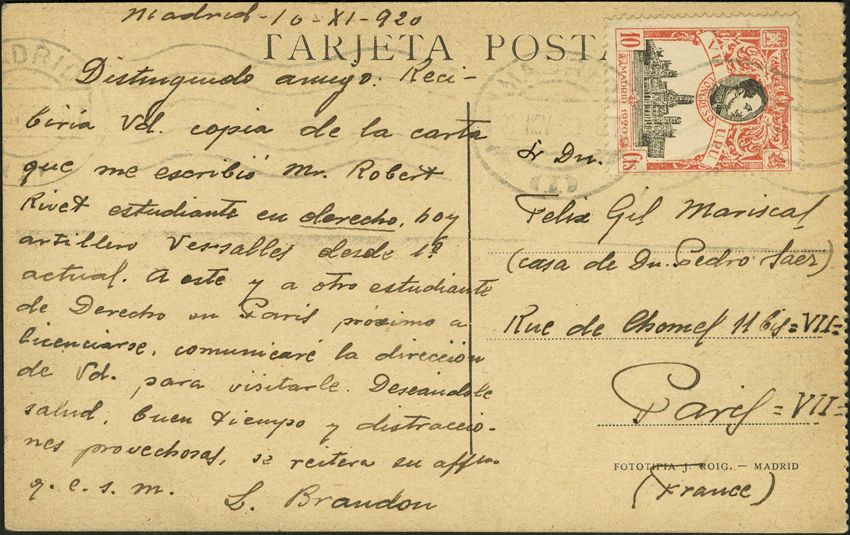 Madrid-10-XI-920
TARJETA POSTA
Distinguido amigo: Reci-
biría Vd. copia de la carta
que me escribió Mr. Robert
Rivet estudiante en derecho, hoy
artillero Versalles desde 1º
actual. A este y a otro estudiante
de Derecho en París próximo a
licenciarse, comunicaré la dirección
de Vd. para visitarle. Deseandole
salud, buen tiempo y distraccio-
nes provechosas, se reitera su affmo.
q. e. s. m. L. Brandon
Sr Dn.
Felix Gil Mariscal
(casa de Dn. Pedro Saez)
Rue de Chomel 11 bis=VII=
Paris=VII=
(France)
FOTOTIPIA J. ROIG. — MADRID
VII CONGRESO UPU
MADRID 1920
10 Cs.